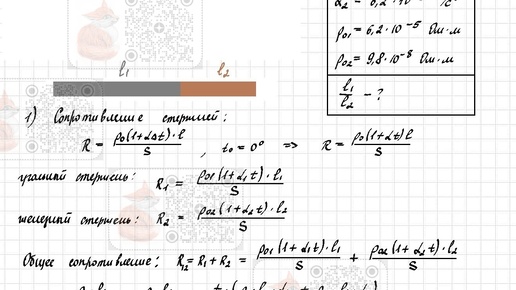 α₂ = 6,2 · 10 °C
ρ₀₁ = 6,2 · 10⁻⁵ Ом·м
ρ₀₂ = 9,8 · 10⁻⁸ Ом·м
l₁/l₂ - ?
l₁ l₂
1) Сопротивление стержней:
R = ρ₀(1+αΔt)·l/S , t₀ = 0° => R = ρ₀(1+αt)l/S
угольный стержень: R₁ = ρ₀₁(1+α₁t)·l₁/S
железный стержень: R₂ = ρ₀₂(1+α₂t)·l₂/S
Общее сопротивление: R₁₂ = R₁ + R₂ = ρ₀₁(1+α₁t)·l₁/S + ρ₀₂(1+α₂t)·l₂/S